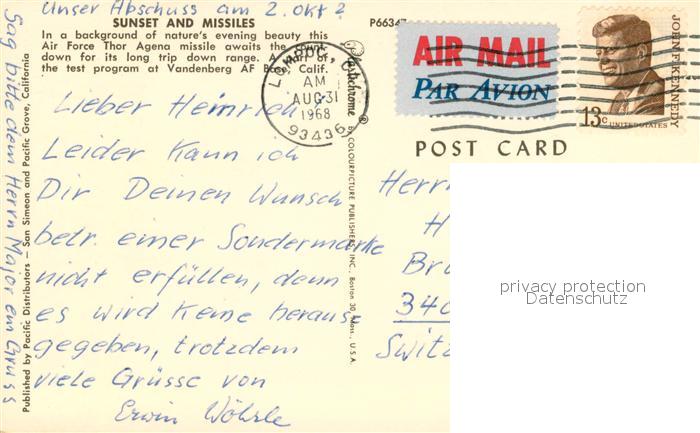 Unser Abschuss am 2. Okt ?
SUNSET AND MISSILES
In a background of nature's evening beauty this
Air Force Thor Agena missile awaits the count
down for its long trip down range. A part of
the test program at Vandenberg AF Base, Calif.
Lieber Heinrich
Leider kann ich
Dir Deinen Wunsch
betr. einer Sondermarke
nicht erfüllen, denn
es wird keine heraus
gegeben, trotzdem
viele Grüsse von
Erwin Wöhrle
Sag bitte dem Herrn Major ein Gruss
Published by Pacific Distributors — San Simeon and Pacific Grove, California
LOMPOC,
AM
AUG 31
1968
93436
Plastichrome ®
BY COLOURPICTURE PUBLISHERS, INC., Boston 30, Mass., U.S.A.
P66347
AIR MAIL
PAR AVION
JOHN F. KENNEDY
13c UNITED STATES
POST CARD
Herr
H
Br
340
Switz
privacy protection
Datenschutz